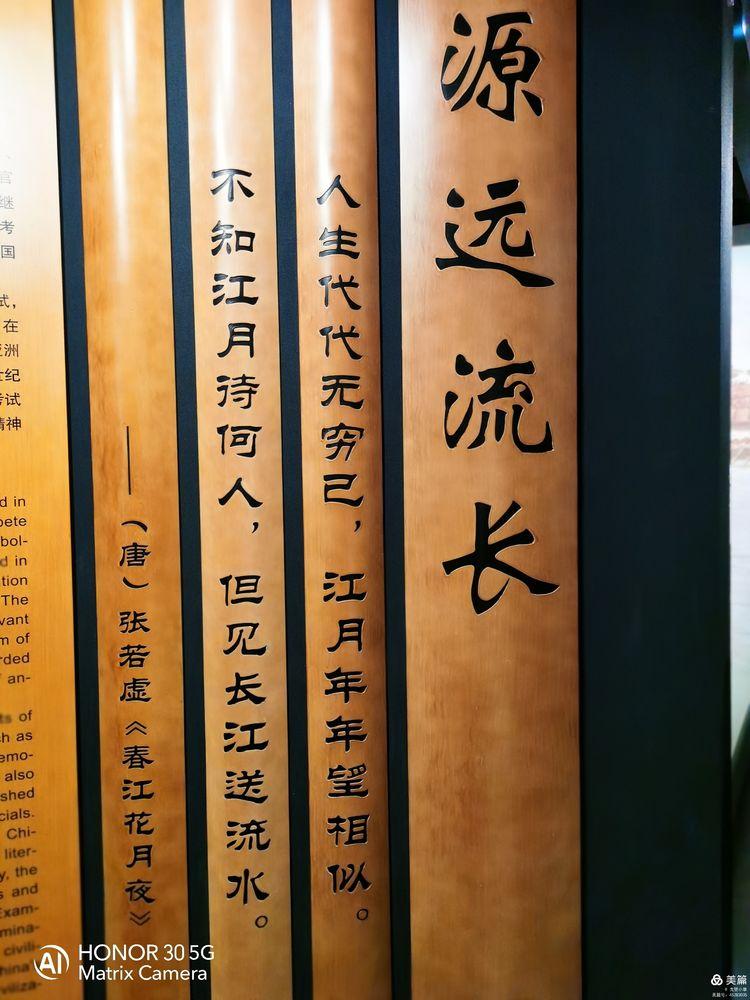 源远流长
人生代代无穷已，江月年年望相似。
不知江月待何人，但见长江送流水。
——（唐）张若虚《春江花月夜》
官
继
考
国
试，
在
亚洲
世纪
考试
精神
d in
pete
bol-
d in
tion
The
vant
m of
rded
an-
ts of
ch as
emo-
also
shed
cials.
Chi-
liter-
y, the
s and
Exam-
mina-
civili-
hina
viliza-
AI HONOR 30 5G
Matrix Camera
美篇